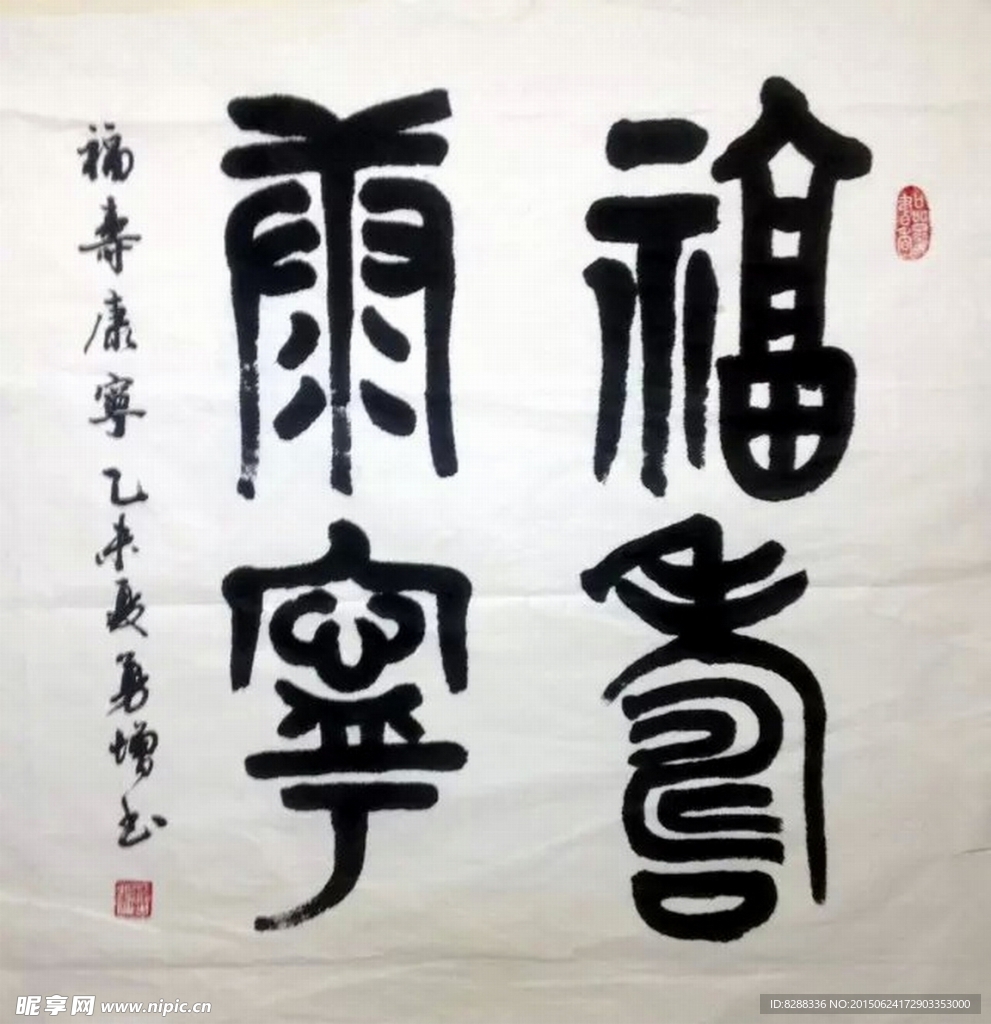 福壽
康寧
福壽康寧 乙未夏 勇增书
昵享网 www.nipic.cn
ID:8288336 NO:20150624172903353000